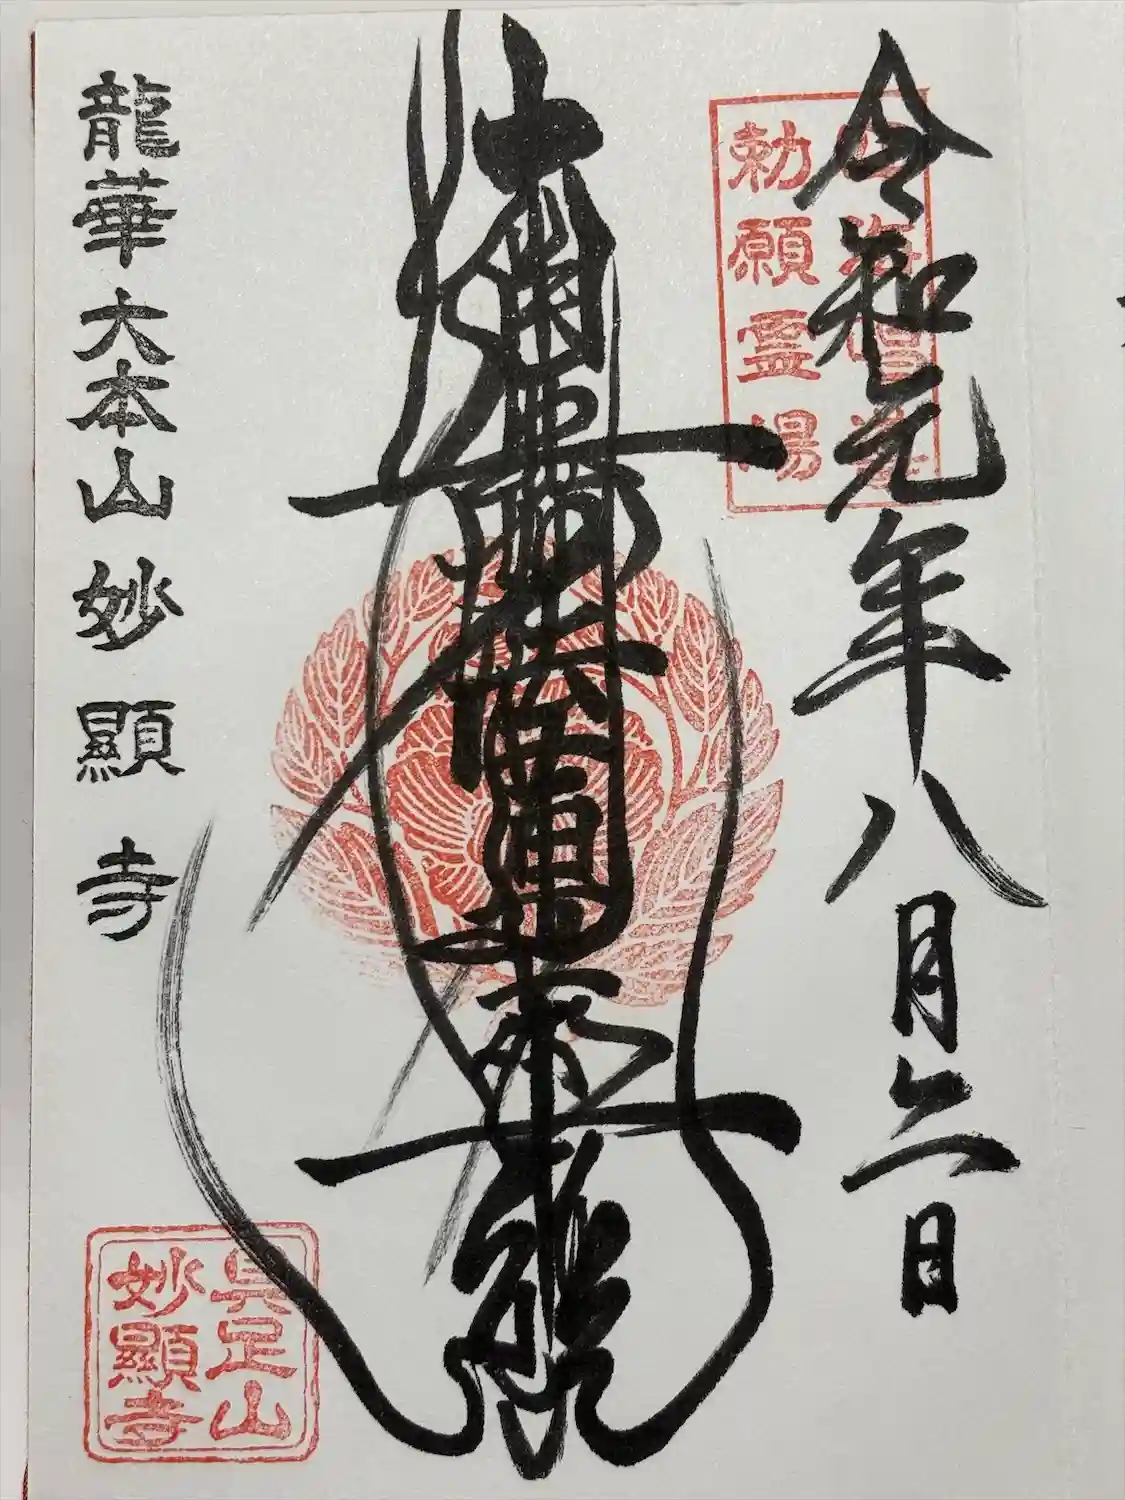 四海唱導
勅願霊場
令和元年八月日
南無妙法蓮華經
龍華大本山妙顯寺
具足山
妙顯寺